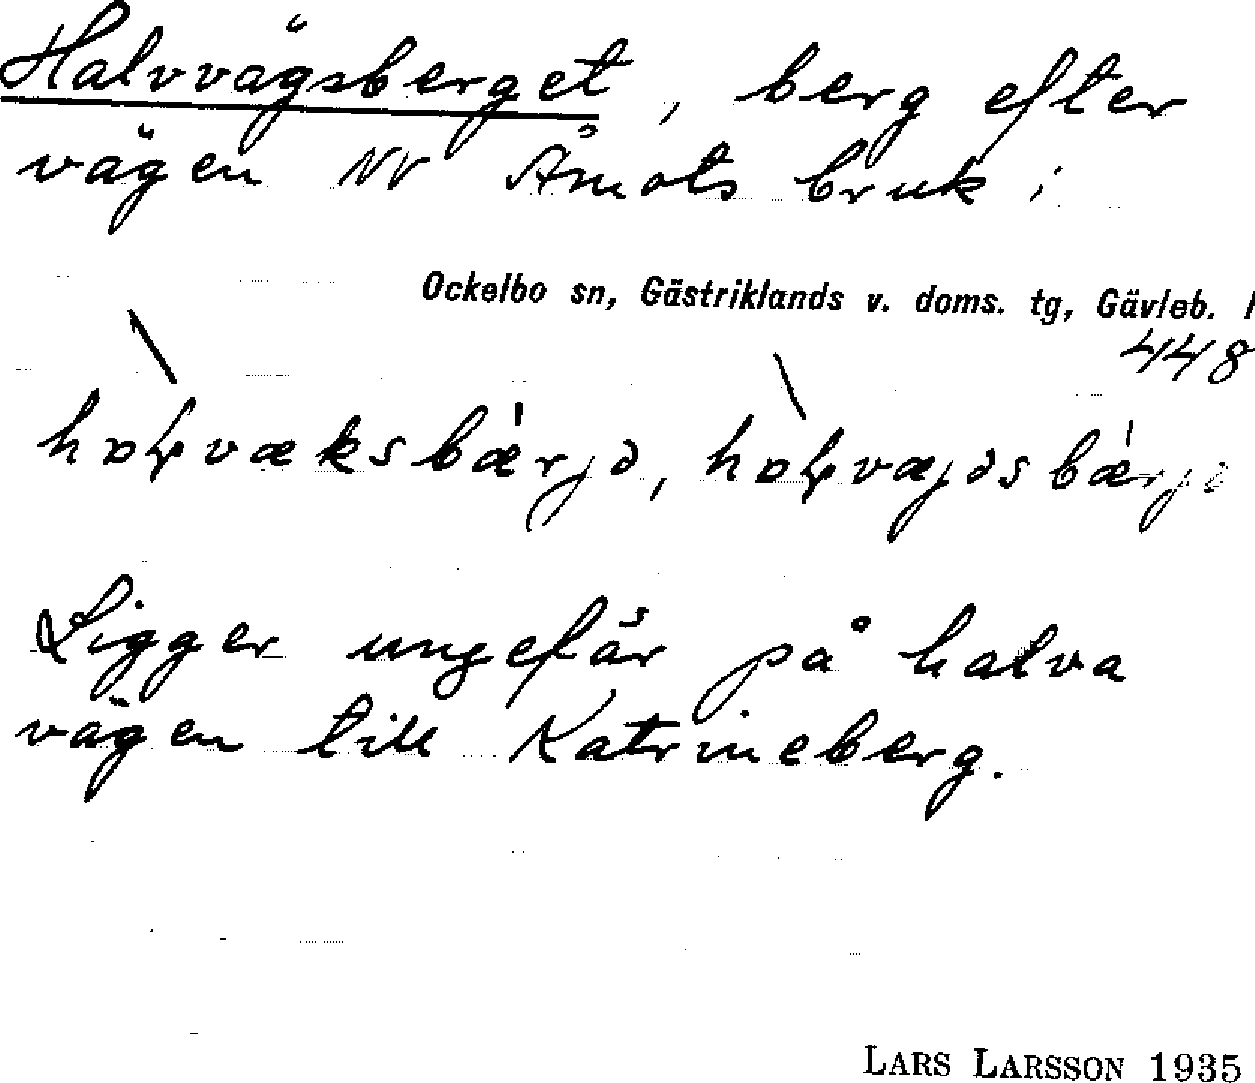 Halvvägsberget, berg efter
vägen NV Åmots bruk i
Ockelbo sn, Gästriklands v. doms. tg, Gävleb. l
448
Ligger ungefär på halva
vägen till Katrineberg.
LARS LARSSON 1935